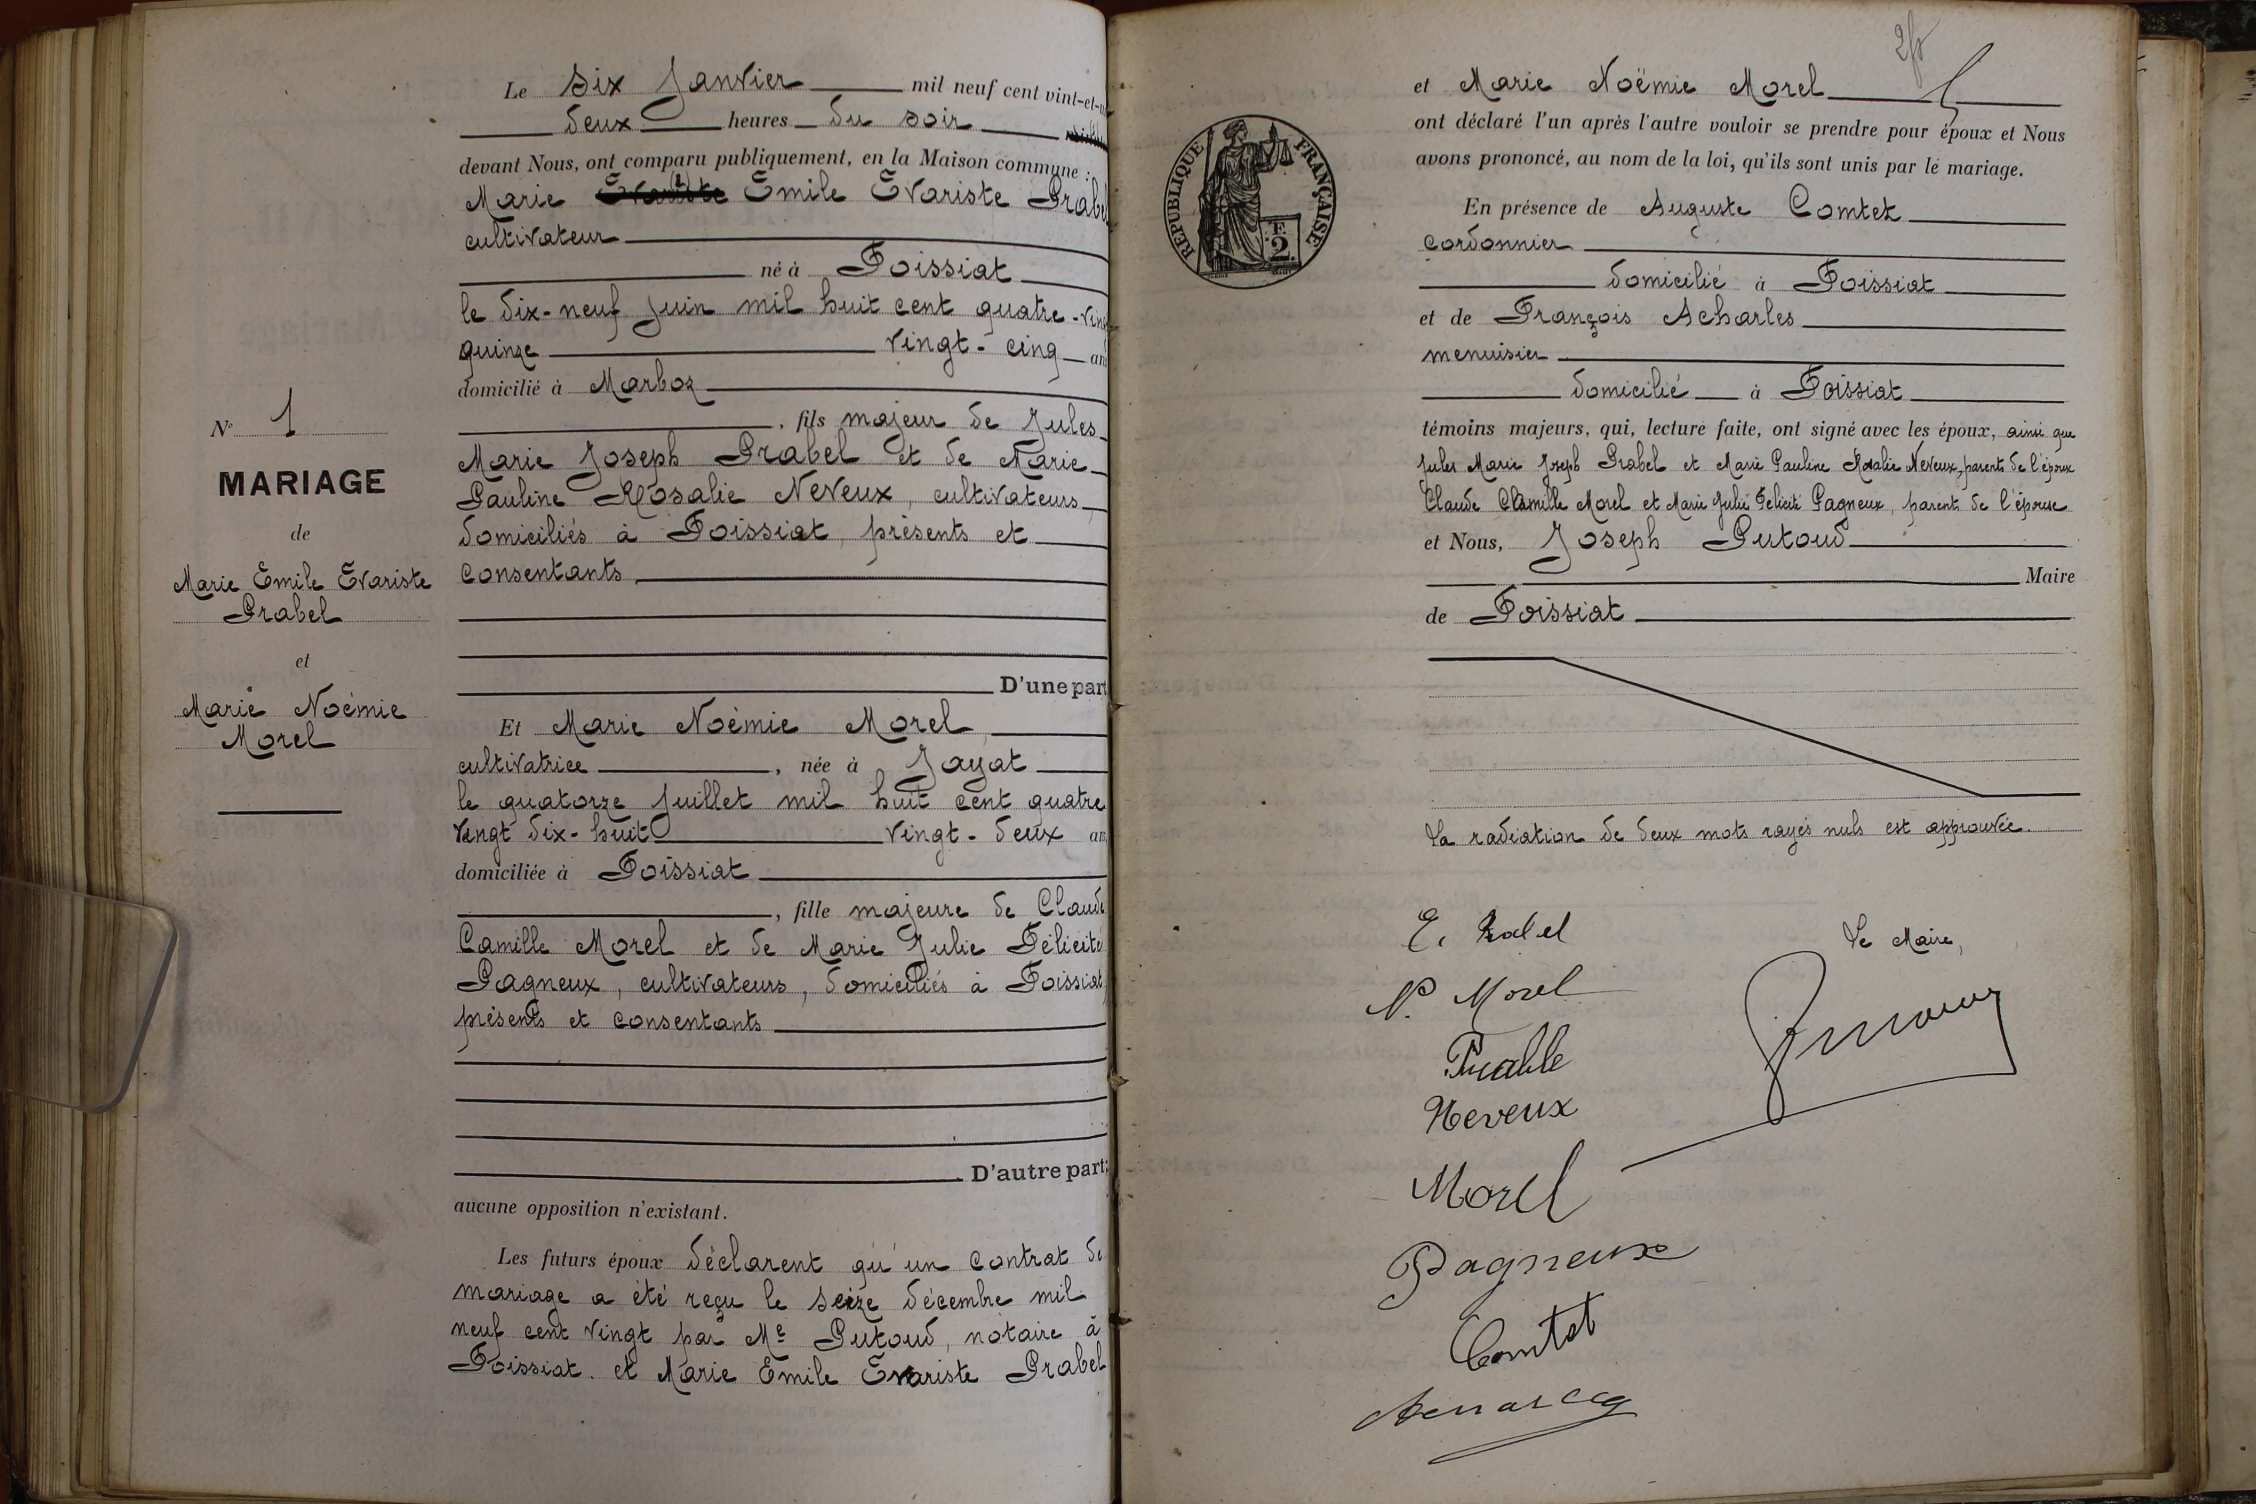 Le six Janvier mil neuf cent vint-et-un
deux heures du soir
devant Nous, ont comparu publiquement, en la Maison commune :
Marie Evariste Emile Evariste Prabel
cultivateur
né à Foissiat
le dix-neuf Juin mil huit cent quatre-ving
quinze vingt-cinq ans
domicilié à Marboz
, fils majeur de Jules
Marie Joseph Prabel et de Marie
Pauline Rosalie Neveux, cultivateurs
domiciliés à Foissiat, présents et
consentants
D'une part
N° 1
MARIAGE
de
Marie Emile Evariste
Prabel
et
Marie Noémie
Morel
Et Marie Noémie Morel,
cultivatrice, née à Jayat
le quatorze Juillet mil huit cent quatre
vingt dix-huit vingt-deux ans
domiciliée à Foissiat
, fille majeure de Claude
Camille Morel et de Marie Julie Félicité
Pagneux, cultivateurs, domiciliés à Foissiat,
présents et consentants
D'autre part;
aucune opposition n'existant.
Les futurs époux déclarent qu'un contrat de
mariage a été reçu le seize décembre mil
neuf cent vingt par Me Putoud, notaire à
Foissiat. et Marie Emile Evariste Prabel
et Marie Noëmie Morel
ont déclaré l'un après l'autre vouloir se prendre pour époux et Nous
avons prononcé, au nom de la loi, qu'ils sont unis par le mariage.
RÉPUBLIQUE FRANÇAISE
2 F.
En présence de Auguste Comtet
cordonnier
domicilié à Foissiat
et de François Acharles
menuisier
domicilié à Foissiat
témoins majeurs, qui, lecture faite, ont signé avec les époux, ainsi que
Jules Marie Joseph Prabel et Marie Pauline Rosalie Neveux, parents de l'époux
Claude Camille Morel et Marie Julie Félicité Pagneux, parents de l'épouse
et Nous, Joseph Putoud
Maire
de Foissiat
La radiation de deux mots rayés nuls est approuvée.
E. Prabel
Le Maire,
N. Morel
Neveux
Morel
Pagneux
Comtet